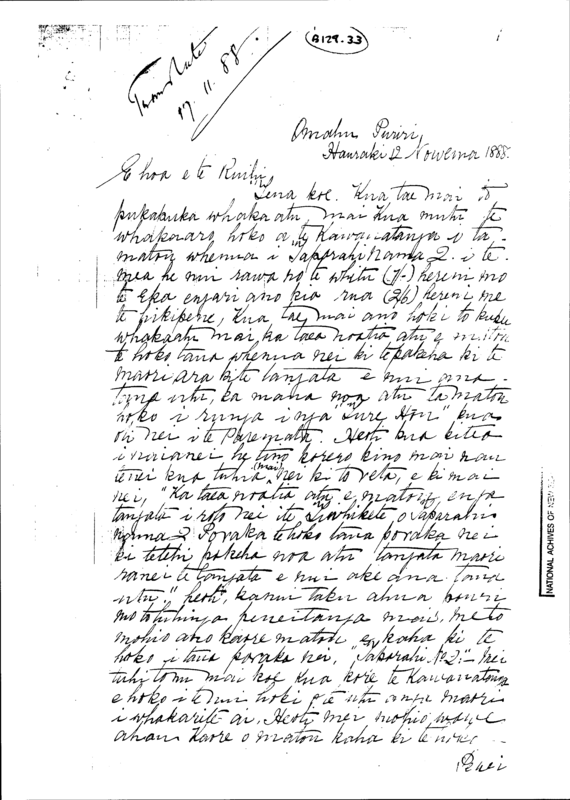 A129.33
1
Translate
17.11.88.
Omahu Puriri,
Hauraki 12 Nowema 1888.
E hoa e te Ruihi,
Tena koe. Kua tae mai to
pukapuka whakaatu mai kua mutu te
whakaaro hoko a te Kawanatanga i ta
matou whenua i Taparahi Nama 2. i te
mea he nui rawa no te whitu (7/-) hereni mo
te Eka engari ano kia rua (2/6) hereni me
te hikipene, Kua tae mai ano hoki to kupu
whakaatu mai ka taea noatia atu e matou
te hoko taua whenua nei ki te pakeha ki te
maori ara ki te tangata e nui ana
tona utu, ka mana noa atu ta matou
hoko i runga i nga "Ture Hou" kua
oti nei i te Paremata. Heoti kua kitea
i naianei he tino korero kino mai nau
tenei kua tuhia (mai) nei ki to reta, e ki mai
nei, "Ka taea noatia atu e matou nga
tangata i roto nei i te Tiwhikete o Taparahi
nama 2 Poraka te hoko taua poraka nei
ki tetehi pakeha noa atu tangata maori
ranei te tangata e nui ake ana tana
utu." heoti, ka nui taku ahua pouri
mo to tuhinga peneitanga mai, me to
mohio ano kaore matou e kaha ki te
hoko i taua poraka nei, "Taparahi No 2."- Mei
tuhi tonu mai koe kua kore te Kawanatanga
e hoko i te nui hoki o te utu a nga maori
i whakarite ai, Heoti mei mohio wawe
ahau Kaore o matou kaha ki te hoko
Penei
NATIONAL ARCHIVES OF NEW